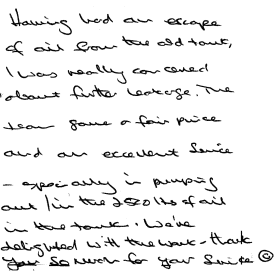 Having had an escape
of oil from the old tank,
I was really concerned
about further leakage. The
team gave a fair price
and an excellent service
- especially in pumping
out / in the 2000 lts of oil
in the tank. We're
delighted with the work - thank
you so much for your service ☺